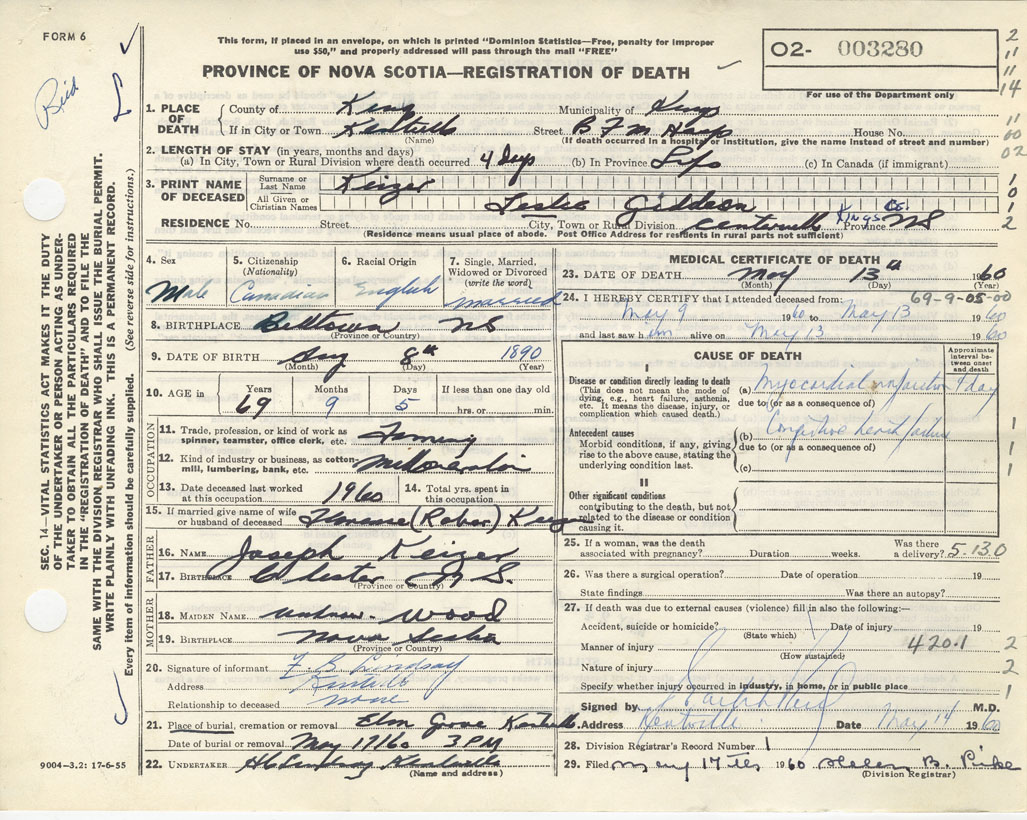 FORM 6
This form, if placed in an envelope, on which is printed "Dominion Statistics—Free, penalty for improper
use $50," and properly addressed will pass through the mail "FREE"
PROVINCE OF NOVA SCOTIA—REGISTRATION OF DEATH
O2- 003280
For use of the Department only
1. PLACE OF DEATH County of Kings Municipality of Kings
If in City or Town Kentville Street B F M Hosp House No.
(Name) (If death occurred in a hospital or institution, give the name instead of street and number)
2. LENGTH OF STAY (in years, months and days)
(a) In City, Town or Rural Division where death occurred 4 Days (b) In Province Life (c) In Canada (if immigrant)
3. PRINT NAME OF DECEASED Surname or Last Name Keizer
All Given or Christian Names Leslie Giddeon
RESIDENCE No. Street City, Town or Rural Division Centreville Kings Co. Province NS
(Residence means usual place of abode. Post Office Address for residents in rural parts not sufficient)
4. Sex Male
5. Citizenship (Nationality) Canadian
6. Racial Origin English
7. Single, Married, Widowed or Divorced (write the word) married
8. BIRTHPLACE NS
(Province or Country)
9. DATE OF BIRTH Aug 8th 1890
(Month) (Day) (Year)
10. AGE in Years 69 Months 9 Days 5 If less than one day old hrs. or min.
OCCUPATION
11. Trade, profession, or kind of work as spinner, teamster, office clerk, etc. Farming
12. Kind of industry or business, as cotton-mill, lumbering, bank, etc.
13. Date deceased last worked at this occupation 1960
14. Total yrs. spent in this occupation
15. If married give name of wife or husband of deceased Keizer
FATHER
16. NAME Joseph Keizer
17. BIRTHPLACE Chester N.S.
(Province or Country)
MOTHER
18. MAIDEN NAME unknown - Wood
19. BIRTHPLACE Nova Scotia
(Province or Country)
20. Signature of informant Lindsay
Address Kentville
Relationship to deceased none
21. Place of burial, cremation or removal Elm Grove Kentville
Date of burial or removal May 17/60 3 PM
22. UNDERTAKER Kentville
(Name and address)
9004-3.2: 17-6-55
MEDICAL CERTIFICATE OF DEATH
23. DATE OF DEATH May 13th 1960
(Month) (Day) (Year)
69-9-05-00
24. I HEREBY CERTIFY that I attended deceased from:
May 9 1960 to May 13 1960
and last saw him alive on May 13 1960
CAUSE OF DEATH
Approximate interval between onset and death
I
Disease or condition directly leading to death (This does not mean the mode of dying, e.g., heart failure, asthenia, etc. It means the disease, injury, or complication which caused death.)
(a) Myocardial infarction 4 days
due to (or as a consequence of)
Antecedent causes
Morbid conditions, if any, giving rise to the above cause, stating the underlying condition last.
(b) Congestive heart failure
due to (or as a consequence of)
(c)
II
Other significant conditions
contributing to the death, but not related to the disease or condition causing it.
25. If a woman, was the death associated with pregnancy? Duration weeks. Was there a delivery? 5.130
26. Was there a surgical operation? Date of operation 19
State findings Was there an autopsy?
27. If death was due to external causes (violence) fill in also the following:—
Accident, suicide or homicide? Date of injury 19
(State which)
Manner of injury 420.1
(How sustained)
Nature of injury
Specify whether injury occurred in industry, in home, or in public place
Signed by M.D.
Address Kentville Date May 14 1960
28. Division Registrar's Record Number 1
29. Filed May 17th 1960 Helen B. Pike
(Division Registrar)
SEC. 14—VITAL STATISTICS ACT MAKES IT THE DUTY
OF THE UNDERTAKER OR PERSON ACTING AS UNDER-
TAKER TO OBTAIN ALL THE PARTICULARS REQUIRED
IN THE "REGISTRATION OF DEATH" AND TO FILE THE
SAME WITH THE DIVISION REGISTRAR WHO SHALL ISSUE THE BURIAL PERMIT.
WRITE PLAINLY WITH UNFADING INK. THIS IS A PERMANENT RECORD.
Every item of information should be carefully supplied. (See reverse side for instructions.)
2
11
11
14
11
60
02
1
0
1
2
1
1
1
2
2
1